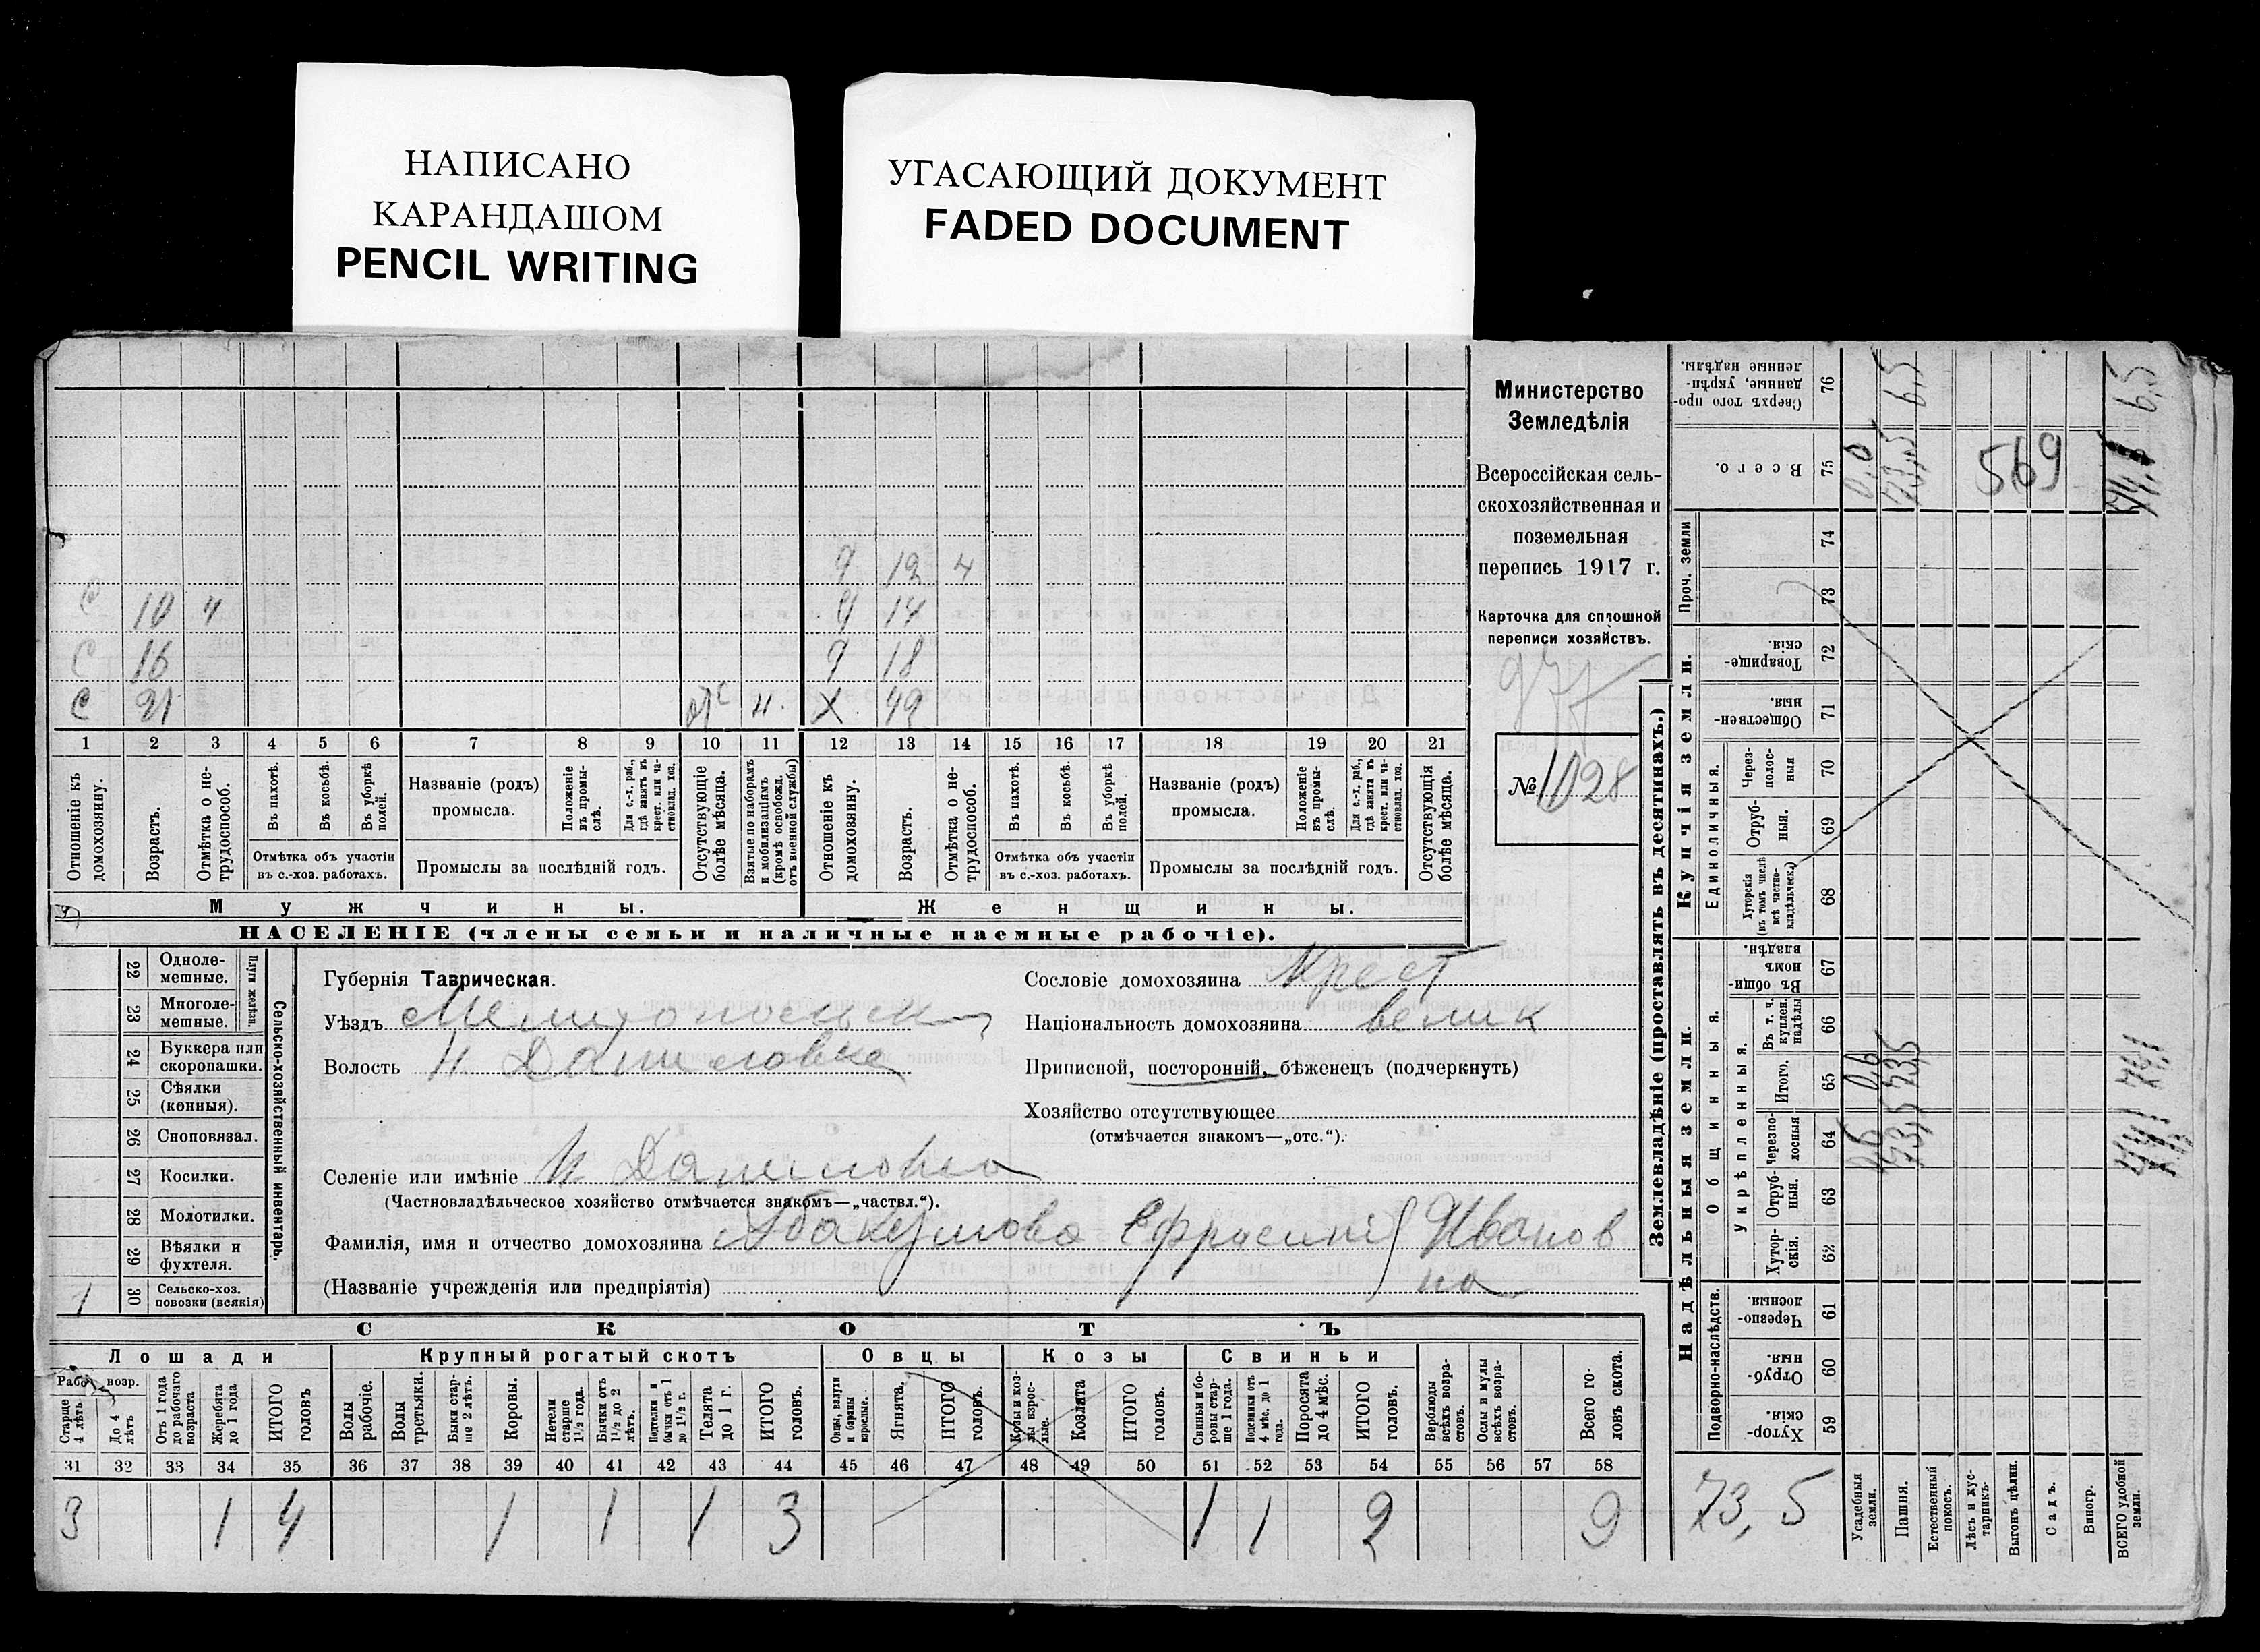 НАПИСАНО
КАРАНДАШОМ
PENCIL WRITING
УГАСАЮЩИЙ ДОКУМЕНТ
FADED DOCUMENT
Министерство
Земледѣлія
Всероссійская сель-
скохозяйственная и
поземельная
перепись 1917 г.
Карточка для сплошной
переписи хозяйствъ.
977
№ 1028
9 12 4
С 10 4 9 14
С 16 9 18
С 21 отс н. Х 42
1 2 3 4 5 6 7 8 9 10 11 12 13 14 15 16 17 18 19 20 21
Отношеніе къ домохозяину.
Возрастъ.
Отмѣтка о не-трудоспособ.
Въ пахотѣ.
Въ косьбѣ.
Въ уборкѣ полей.
Отмѣтка объ участіи
въ с.-хоз. работахъ.
Названіе (родъ)
промысла.
Положеніе въ промы-слѣ.
Для с.-х. раб., гдѣ занятъ въ крест. или ча-стновлад. хоз.
Промыслы за послѣдній годъ.
Отсутствующіе болѣе мѣсяца.
Взятые по наборамъ и мобилизаціямъ (кромѣ освобожд. отъ военной службы)
Отношеніе къ домохозяину.
Возрастъ.
Отмѣтка о не-трудоспособ.
Въ пахотѣ.
Въ косьбѣ.
Въ уборкѣ полей.
Отмѣтка объ участіи
въ с.-хоз. работахъ.
Названіе (родъ)
промысла.
Положеніе въ промы-слѣ.
Для с.-х. раб., гдѣ занятъ въ крест. или ча-стновлад. хоз.
Промыслы за послѣдній годъ.
Отсутствующія болѣе мѣсяца.
Мужчины.
Женщины.
НАСЕЛЕНІЕ (члены семьи и наличные наемные рабочіе).
Сельско-хозяйственный инвентарь.
Плуги желѣз.
22 Одноле-мешные.
23 Многоле-мешные.
24 Буккера или скоропашки.
25 Сѣялки (конныя).
26 Сноповязал.
27 Косилки.
28 Молотилки.
29 Вѣялки и фухтеля.
1 30 Сельско-хоз. повозки (всякія)
Губернія Таврическая.
Уѣздъ Мелитопольск
Волость Н. Даниловка
Селеніе или имѣніе Н. Даниловка
(Частновладѣльческое хозяйство отмѣчается знакомъ—„частвл.“).
Фамилія, имя и отчество домохозяина Абакумова Ефросинія Иванов
на
(Названіе учрежденія или предпріятія)
Сословіе домохозяина Крест
Національность домохозяина велик
Приписной, посторонній, бѣженецъ (подчеркнуть)
Хозяйство отсутствующее
(отмѣчается знакомъ—„отс.“).
СКОТЪ
Лошади Крупный рогатый скотъ Овцы Козы Свиньи
Рабоч. возр.
Старше 4 лѣтъ.
До 4 лѣтъ
Отъ 1 года до рабочаго возраста
Жеребята до 1 года
ИТОГО головъ
Волы рабочіе.
Волы третьяки.
Быки стар-ше 2 лѣтъ.
Коровы.
Нетели старше 1½ года.
Бычки отъ 1½ до 2 лѣтъ.
Подтелки и бычки отъ 1 до 1½ г.
Телята до 1 г.
ИТОГО головъ.
Овцы, валухи и бараны взрослые.
Ягнята.
ИТОГО головъ.
Козы и коз-лы взрос-лые.
Козлята
ИТОГО головъ.
Свиньи и бо-ровы стар-ше 1 года.
Подсвинки отъ 4 мѣс. до 1 года.
Поросята до 4 мѣс.
ИТОГО головъ.
Верблюды всѣхъ возра-стовъ.
Ослы и мулы всѣхъ возра-стовъ.
Всего го-ловъ скота.
31 32 33 34 35 36 37 38 39 40 41 42 43 44 45 46 47 48 49 50 51 52 53 54 55 56 57 58
3 1 4 1 1 1 3 1 1 2 9
Землевладѣніе (проставлять въ десятинахъ.)
Надѣльныя земли.
Купчія земли.
Проч. земли
Подворно-наслѣдств.
Общинныя.
Укрѣпленныя.
Единоличныя.
76 Сверхъ того про-данные, укрѣп-ленные надѣлы.
75 Всего.
74
73
72 Товарище-скія.
71 Обществен-ныя.
70 Через-полос-ныя
69 Отруб-ныя.
68 Хуторскія (въ томъ числѣ всѣ частно-владѣльческ.)
67 Въ общи-номъ владѣн.
66 Въ т. ч. куплен. надѣлы
65 Итого.
64 Черезпо-лосныя
63 Отруб-ныя.
62 Хутор-скія.
61 Черезпо-лосныя.
60 Отруб-ныя.
59 Хутор-скія.
6,5 6,5
569
73,5
Усадебныя земли.
Пашня.
Естественный покосъ.
Лѣсъ и кус-тарникъ.
Выгонъ цѣлин.
Садъ.
Виногр.
ВСЕГО удобной земли.